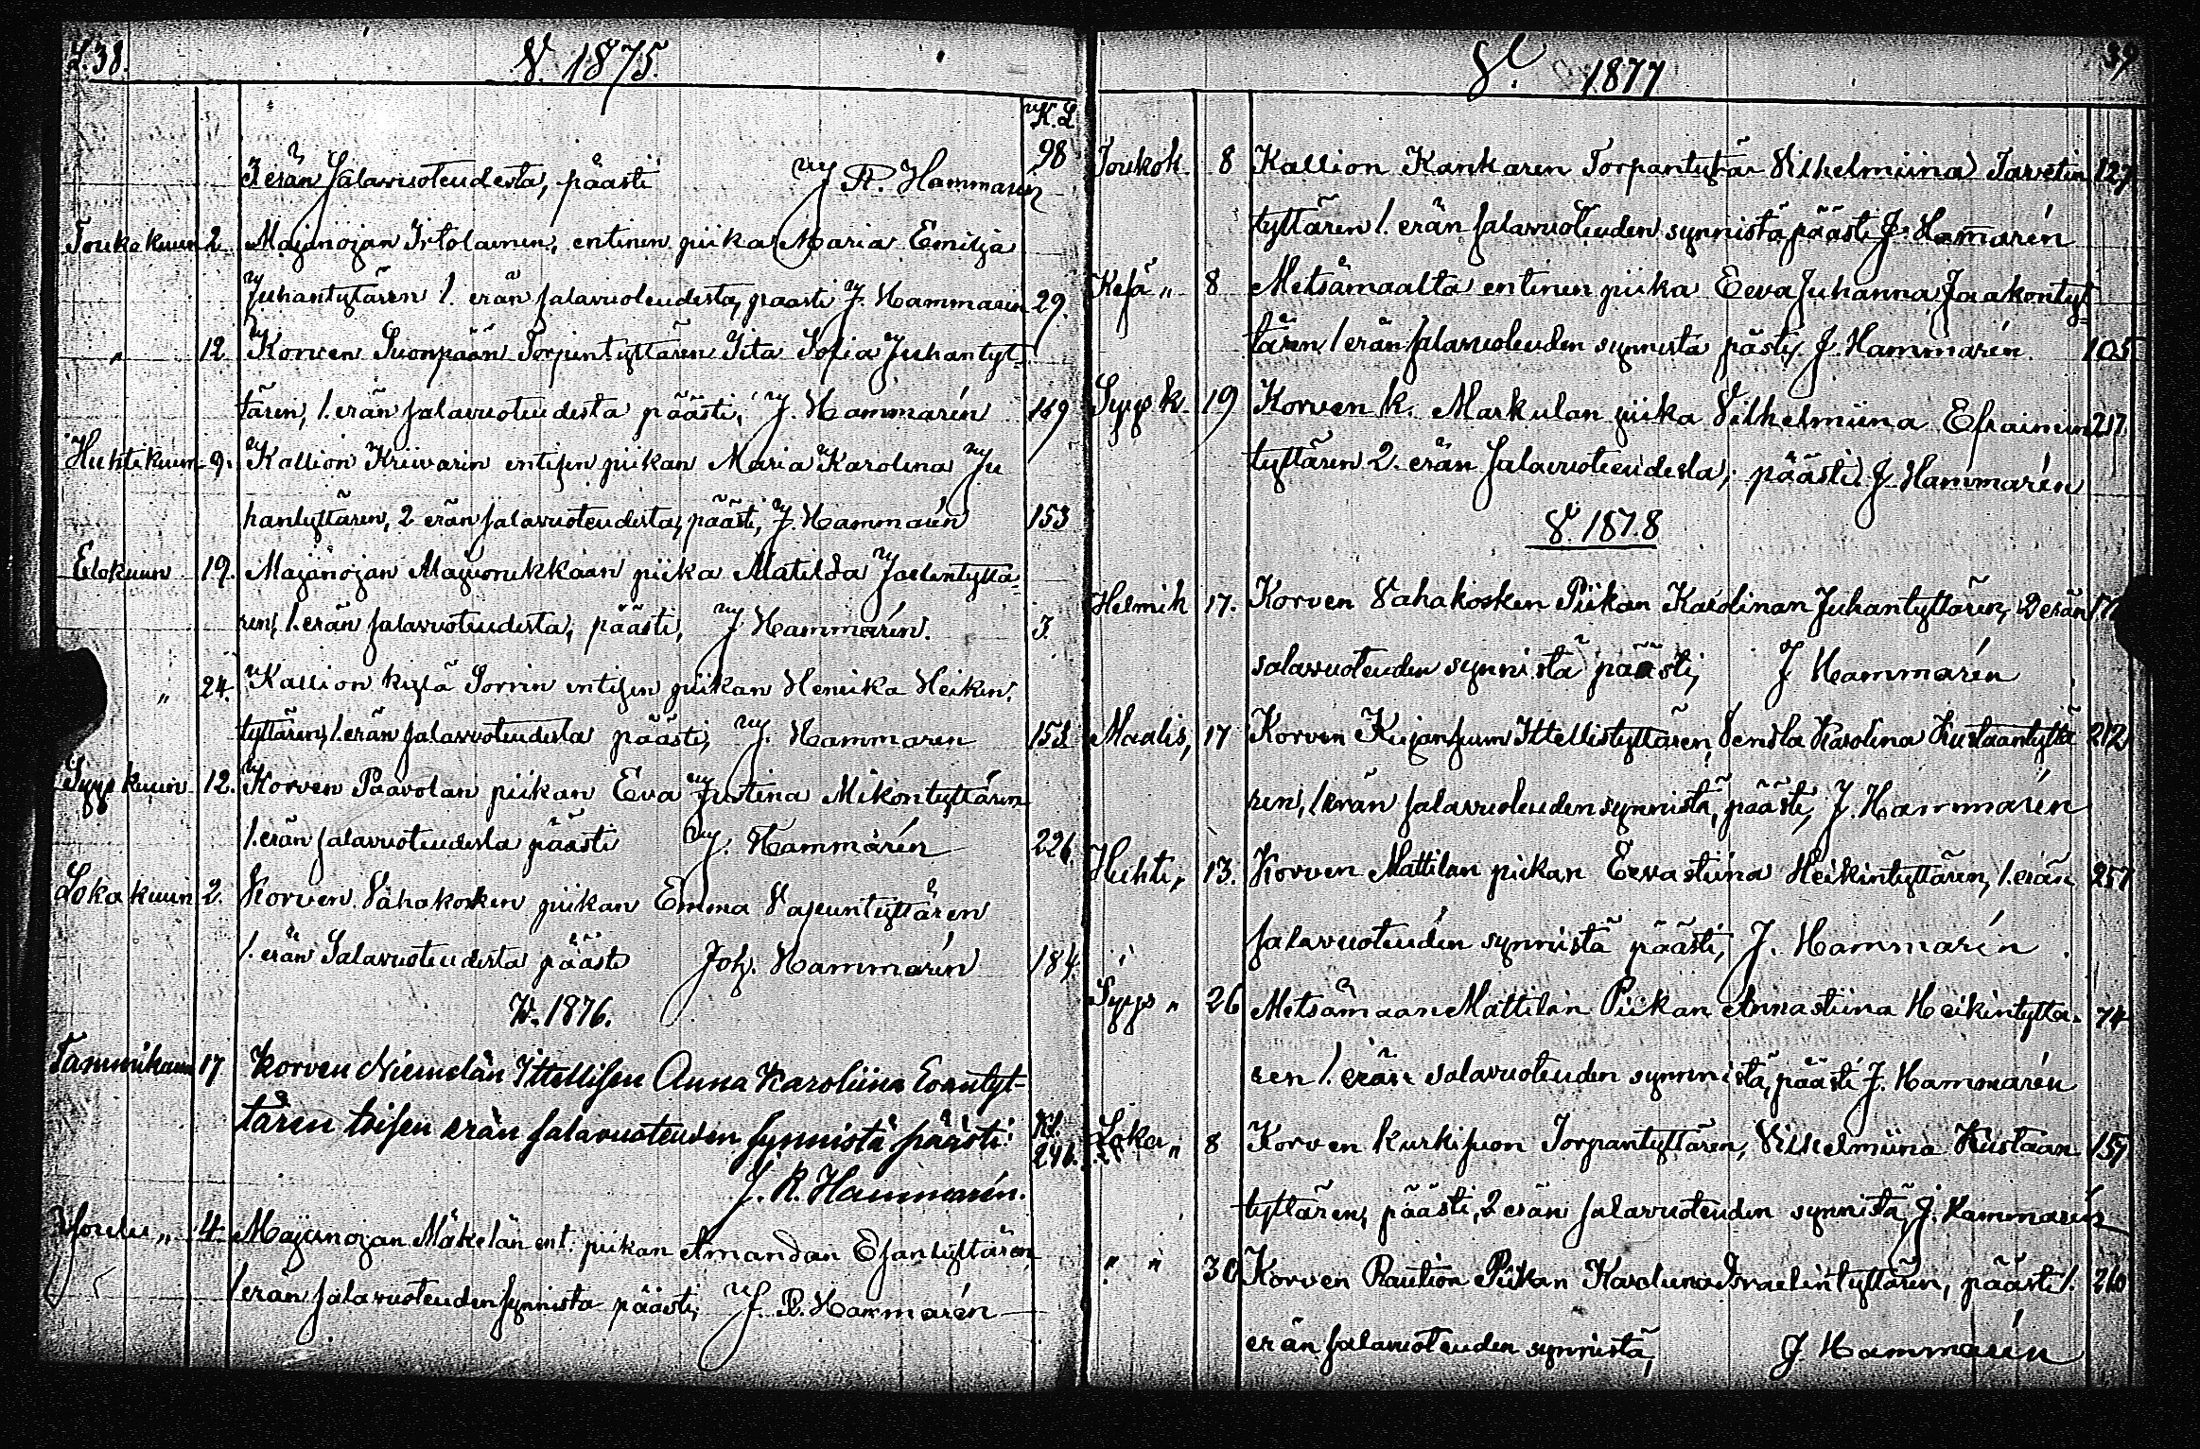 L. 38.
V. 1875.
K. L
3 erän Salavuoteudesta, päästi J R. Hammarén 98
Toukokuun 2. Majanojan Irtolainen, entinen piika Maria Emilja
Juhantytären 1. erän salavuoteudesta, päästi J. Hammarén 29.
" 12. Korven Suonpään Torpintyttären Iita Sofia Juhantyt-
tären, 1. erän salavuoteudesta päästi, J. Hammarén 169
Huhtikuun 9. Kallion Kriivarin entisen piikan Maria Karolina Ju
hantyttären, 2 erän salavuoteudesta, päästi, J. Hammarén 153
Elokuun 19. Majanojan piika Matilda Joelintyttä-
ren, 1. erän salavuoteudesta, päästi, J Hammarén. 3.
" 24. Kallion kylä Sorrin entisen piikan Heniika Heikin
tyttären, 1. erän salavuoteudesta päästi, J. Hammaren 153
Syyskuun 12. Korven Paavolan piikan Eva Justina Mikontyttären
1. erän salavuoteudesta päästi J. Hammarén 226.
Lokakuun 2. Korven Vähakosken piikan Emma Vapuntyttären
1. erän Salavuoteudesta päästi Joh. Hammarén 184.
W. 1876.
Tammikuun 17 Korven Niemelän Ittellisen Anna Karoliina Eenntyt-
tären toisen erän salavuoteuden synnistä päästi: Kl. 246.
J. R. Hammarén.
Joulu " 4. Majanojan Mäkelän ent. piikan Amandan Esantyttären
1 erän salavuoteuden synnista päästi, J. R. Hammarén
39
V. 1877
Toukok 8 Kallion Kankaren Torpantytär Vilhelmiina Tarvetin 127
tyttären 1. erän salavuoteuden synnistä päästi J. Hamarén
Kesä " 8 Metsämaalta entinen piika Eeva Juhanna Jaakontyt-
tären 1 erän salavuoteuden synnistä pästi J. Hammarén 105
Syysk. 19 Korven k. Markulan piika Vilhelmiina Efraimin 217.
tyttären 2. erän Salavuoteudesta, päästi J Hammarén
V. 1878
Helmik 17. Korven Vahakosken Piikan Karolinan Juhantyttären, 2 erän
salavuoteuden synnistä päästi, J Hammarén
Maalis, 17 Korven Kujansuun Ittellistyttären Vendla Karolina Kustaantyttä 212
ren, 1 erän salavuoteuden synnistä, päästi, J. Hammarén
Huhti, 13. Korven Mattilan piikan Eevastiina Heikintyttären, 1. erän 257
salavuoteuden synnistä päästi, J. Hammarén
Syys " 26 Metsämaan Mattilan Piikan Annastiina Heikintyttä- 74
ren 1. erän salavuoteuden synnistä, päästi J. Hammarén
Loka " 8 Korven Kurkisuon Torpantyttären, Vilhelmiina Kustaan 157
tyttären, päästi, 2 erän salavuoteuden synnistä, J. Hammarén
" " 30 Korven Raution Piikan Karoliina Israelintyttären, päästi 1. 260
erän salavuoteuden synnistä, J Hammarén